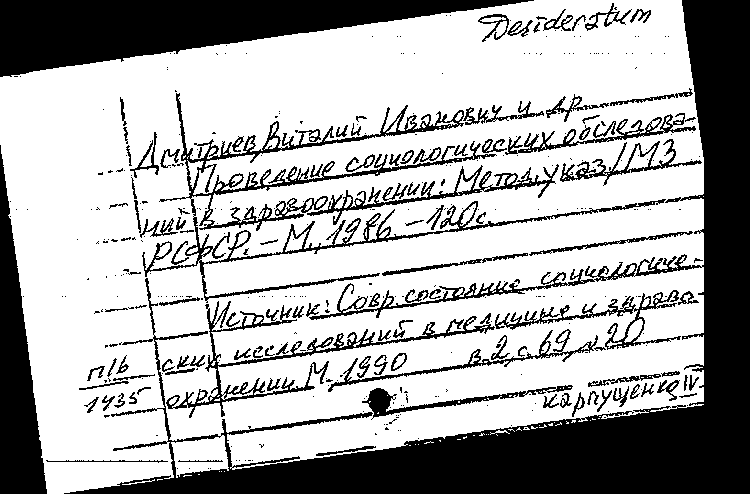 Desideratum
Дмитриев, Виталий Иванович и др
Проведение социологических обследова-
ний в здравоохранении: Метод. указ/МЗ
РСФСР. – М., 1986. – 120с.
Источник: Совр. состояние социологиче-
ских исследований в медицине и здраво-
охранении. М., 1990 в.2, с. 69, №20
п/б
1435
Карпущенко IV